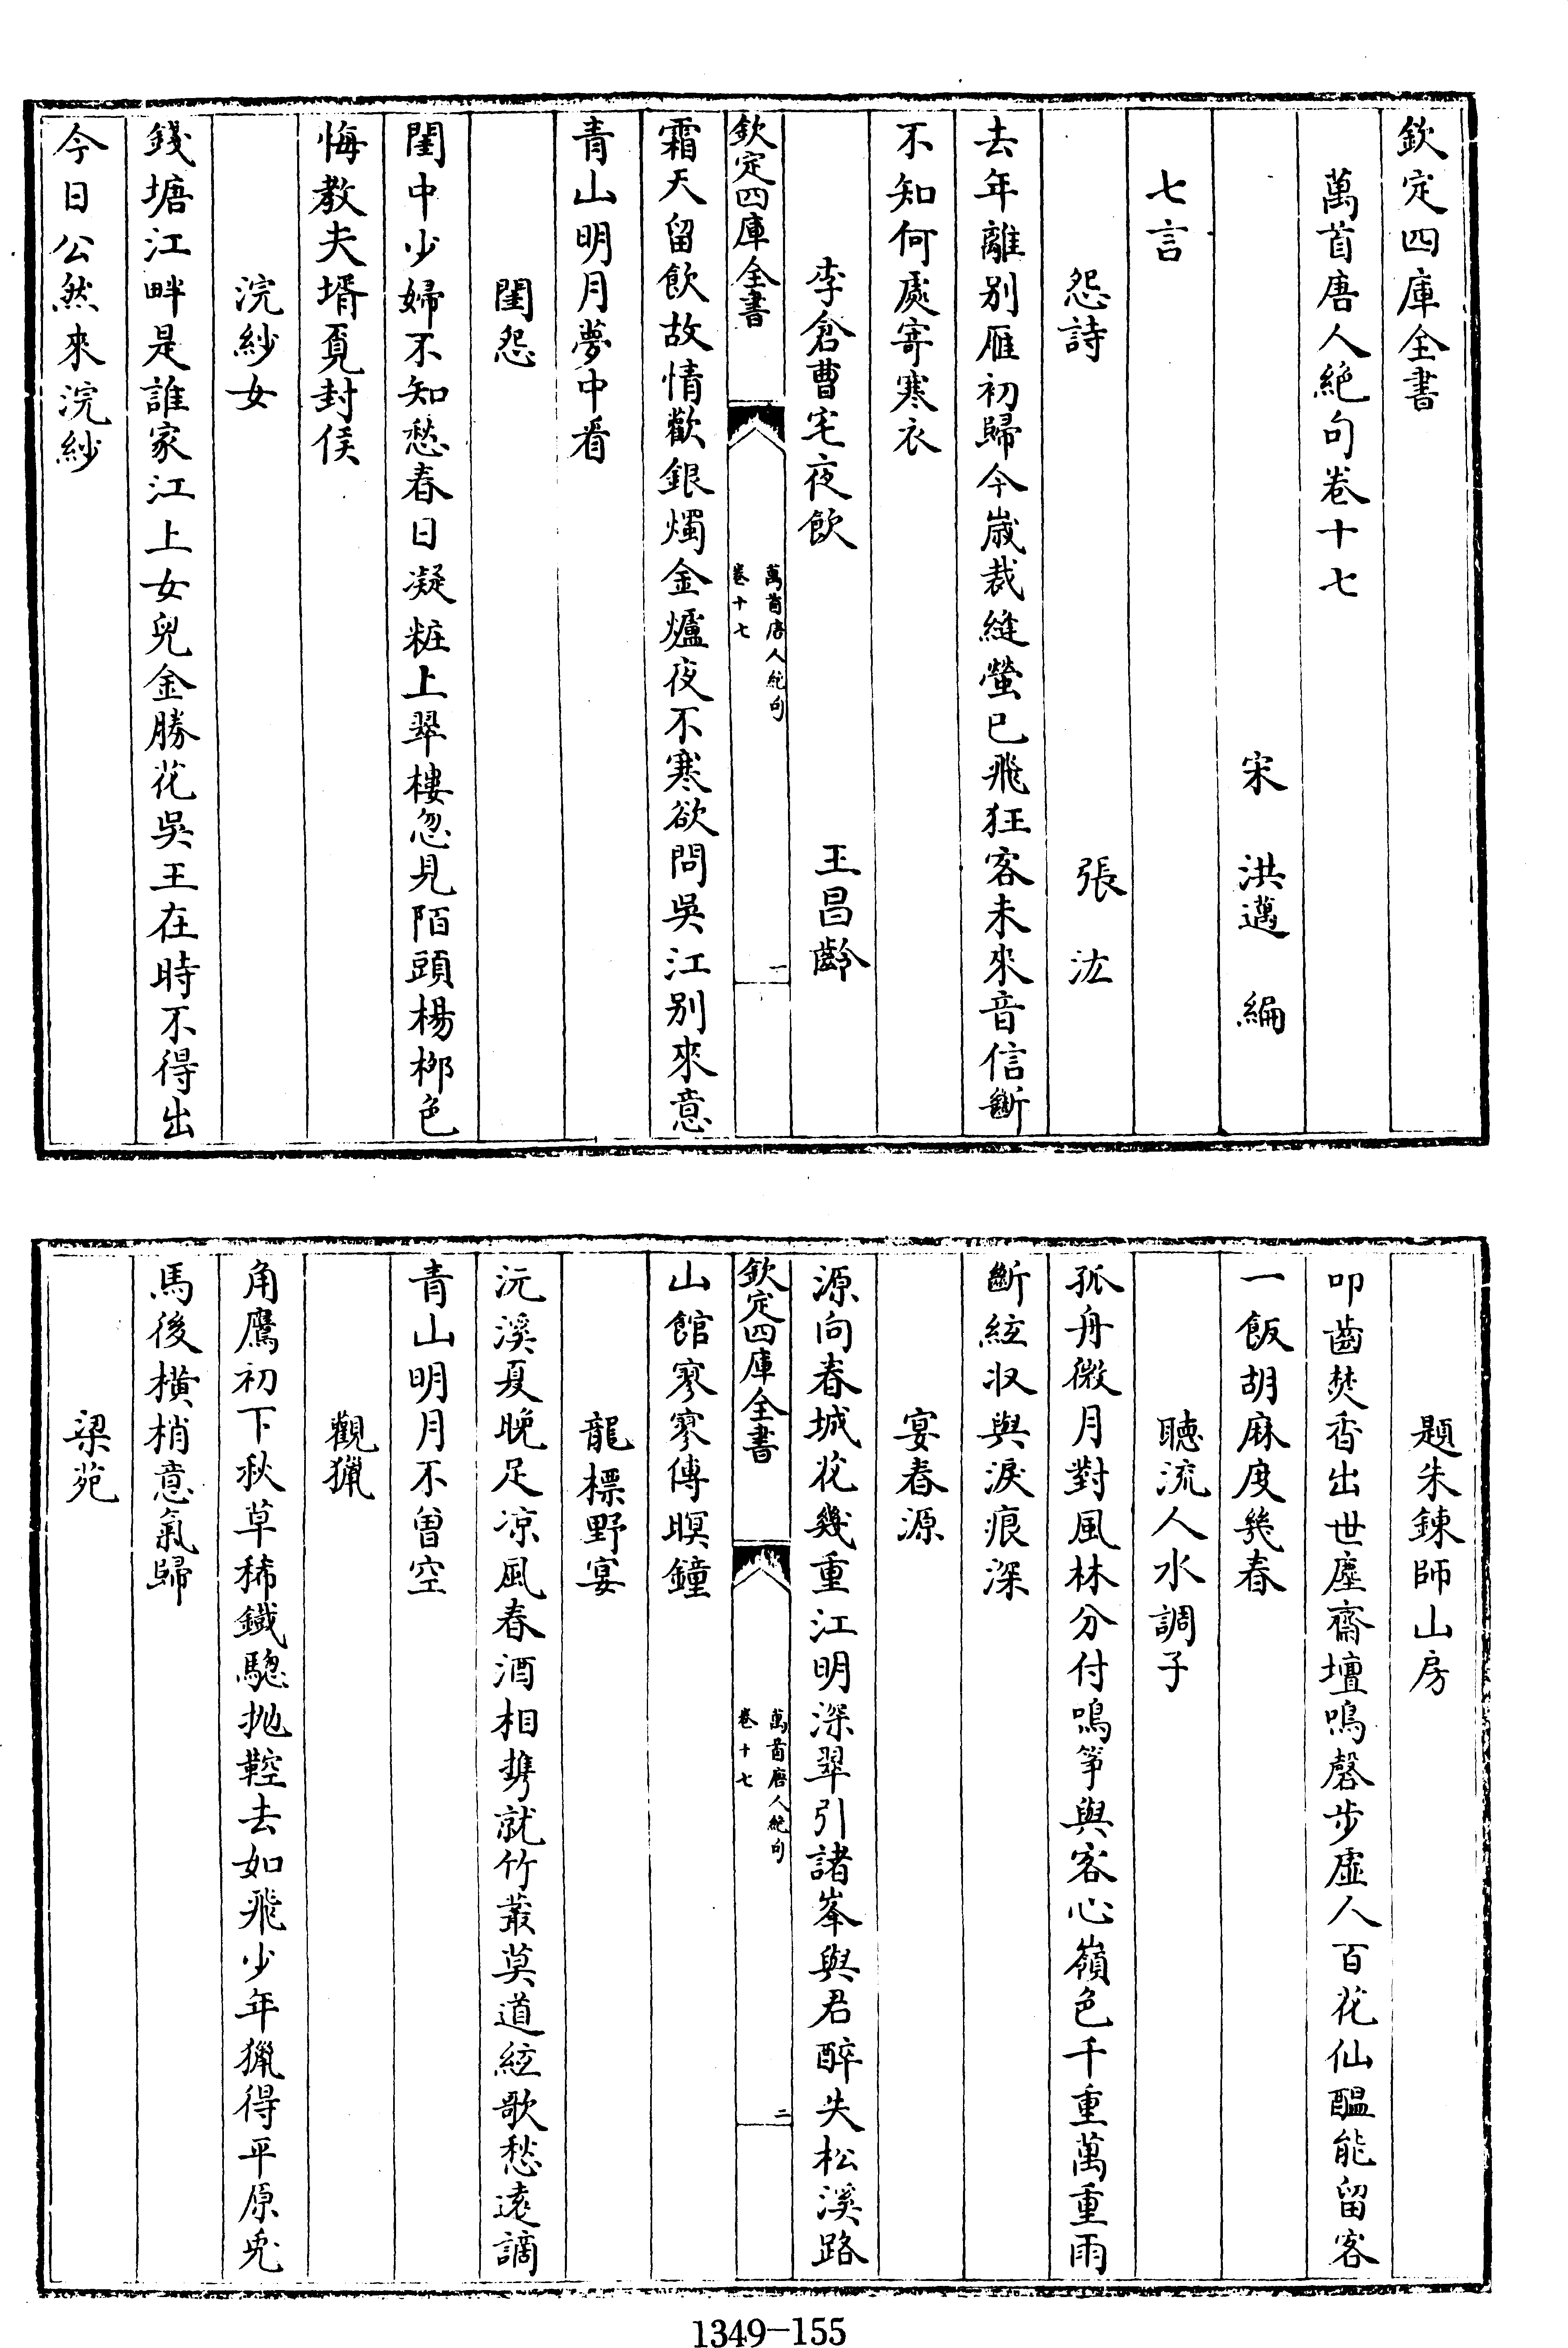 欽定四庫全書
萬首唐人絶句卷十七
宋 洪邁 編
七言
怨詩 張汯
去年離別雁初歸今歲裁縫螢已飛狂客未來音信斷
不知何處寄寒衣
李倉曹宅夜飲 王昌齡
欽定四庫全書
萬首唐人絶句
卷十七
一
霜天留飲故情歡銀燭金爐夜不寒欲問吳江别來意
青山明月夢中看
閨怨
閨中少婦不知愁春日凝粧上翠樓忽見陌頭楊栁色
悔教夫壻覓封侯
浣紗女
錢塘江畔是誰家江上女兒金勝花吳王在時不得出
今日公然來浣紗
題朱鍊師山房
叩齒焚香出世塵齋壇鳴磬步虛人百花仙醖能留客
一飯胡麻度幾春
聽流人水調子
孤舟微月對風林分付鳴箏與客心嶺色千重萬重雨
斷絃収與淚痕深
宴春源
源向春城花幾重江明深翠引諸峯與君醉失松溪路
欽定四庫全書
萬首唐人絶句
卷十七
二
山館寥寥傳暝鐘
龍標野宴
沅溪夏晚足凉風春酒相攜就竹叢莫道絃歌愁遠謫
青山明月不曽空
觀獵
角鷹初下秋草稀鐵驄抛鞚去如飛少年獵得平原兎
馬後橫梢意氣歸
梁苑
1349-155